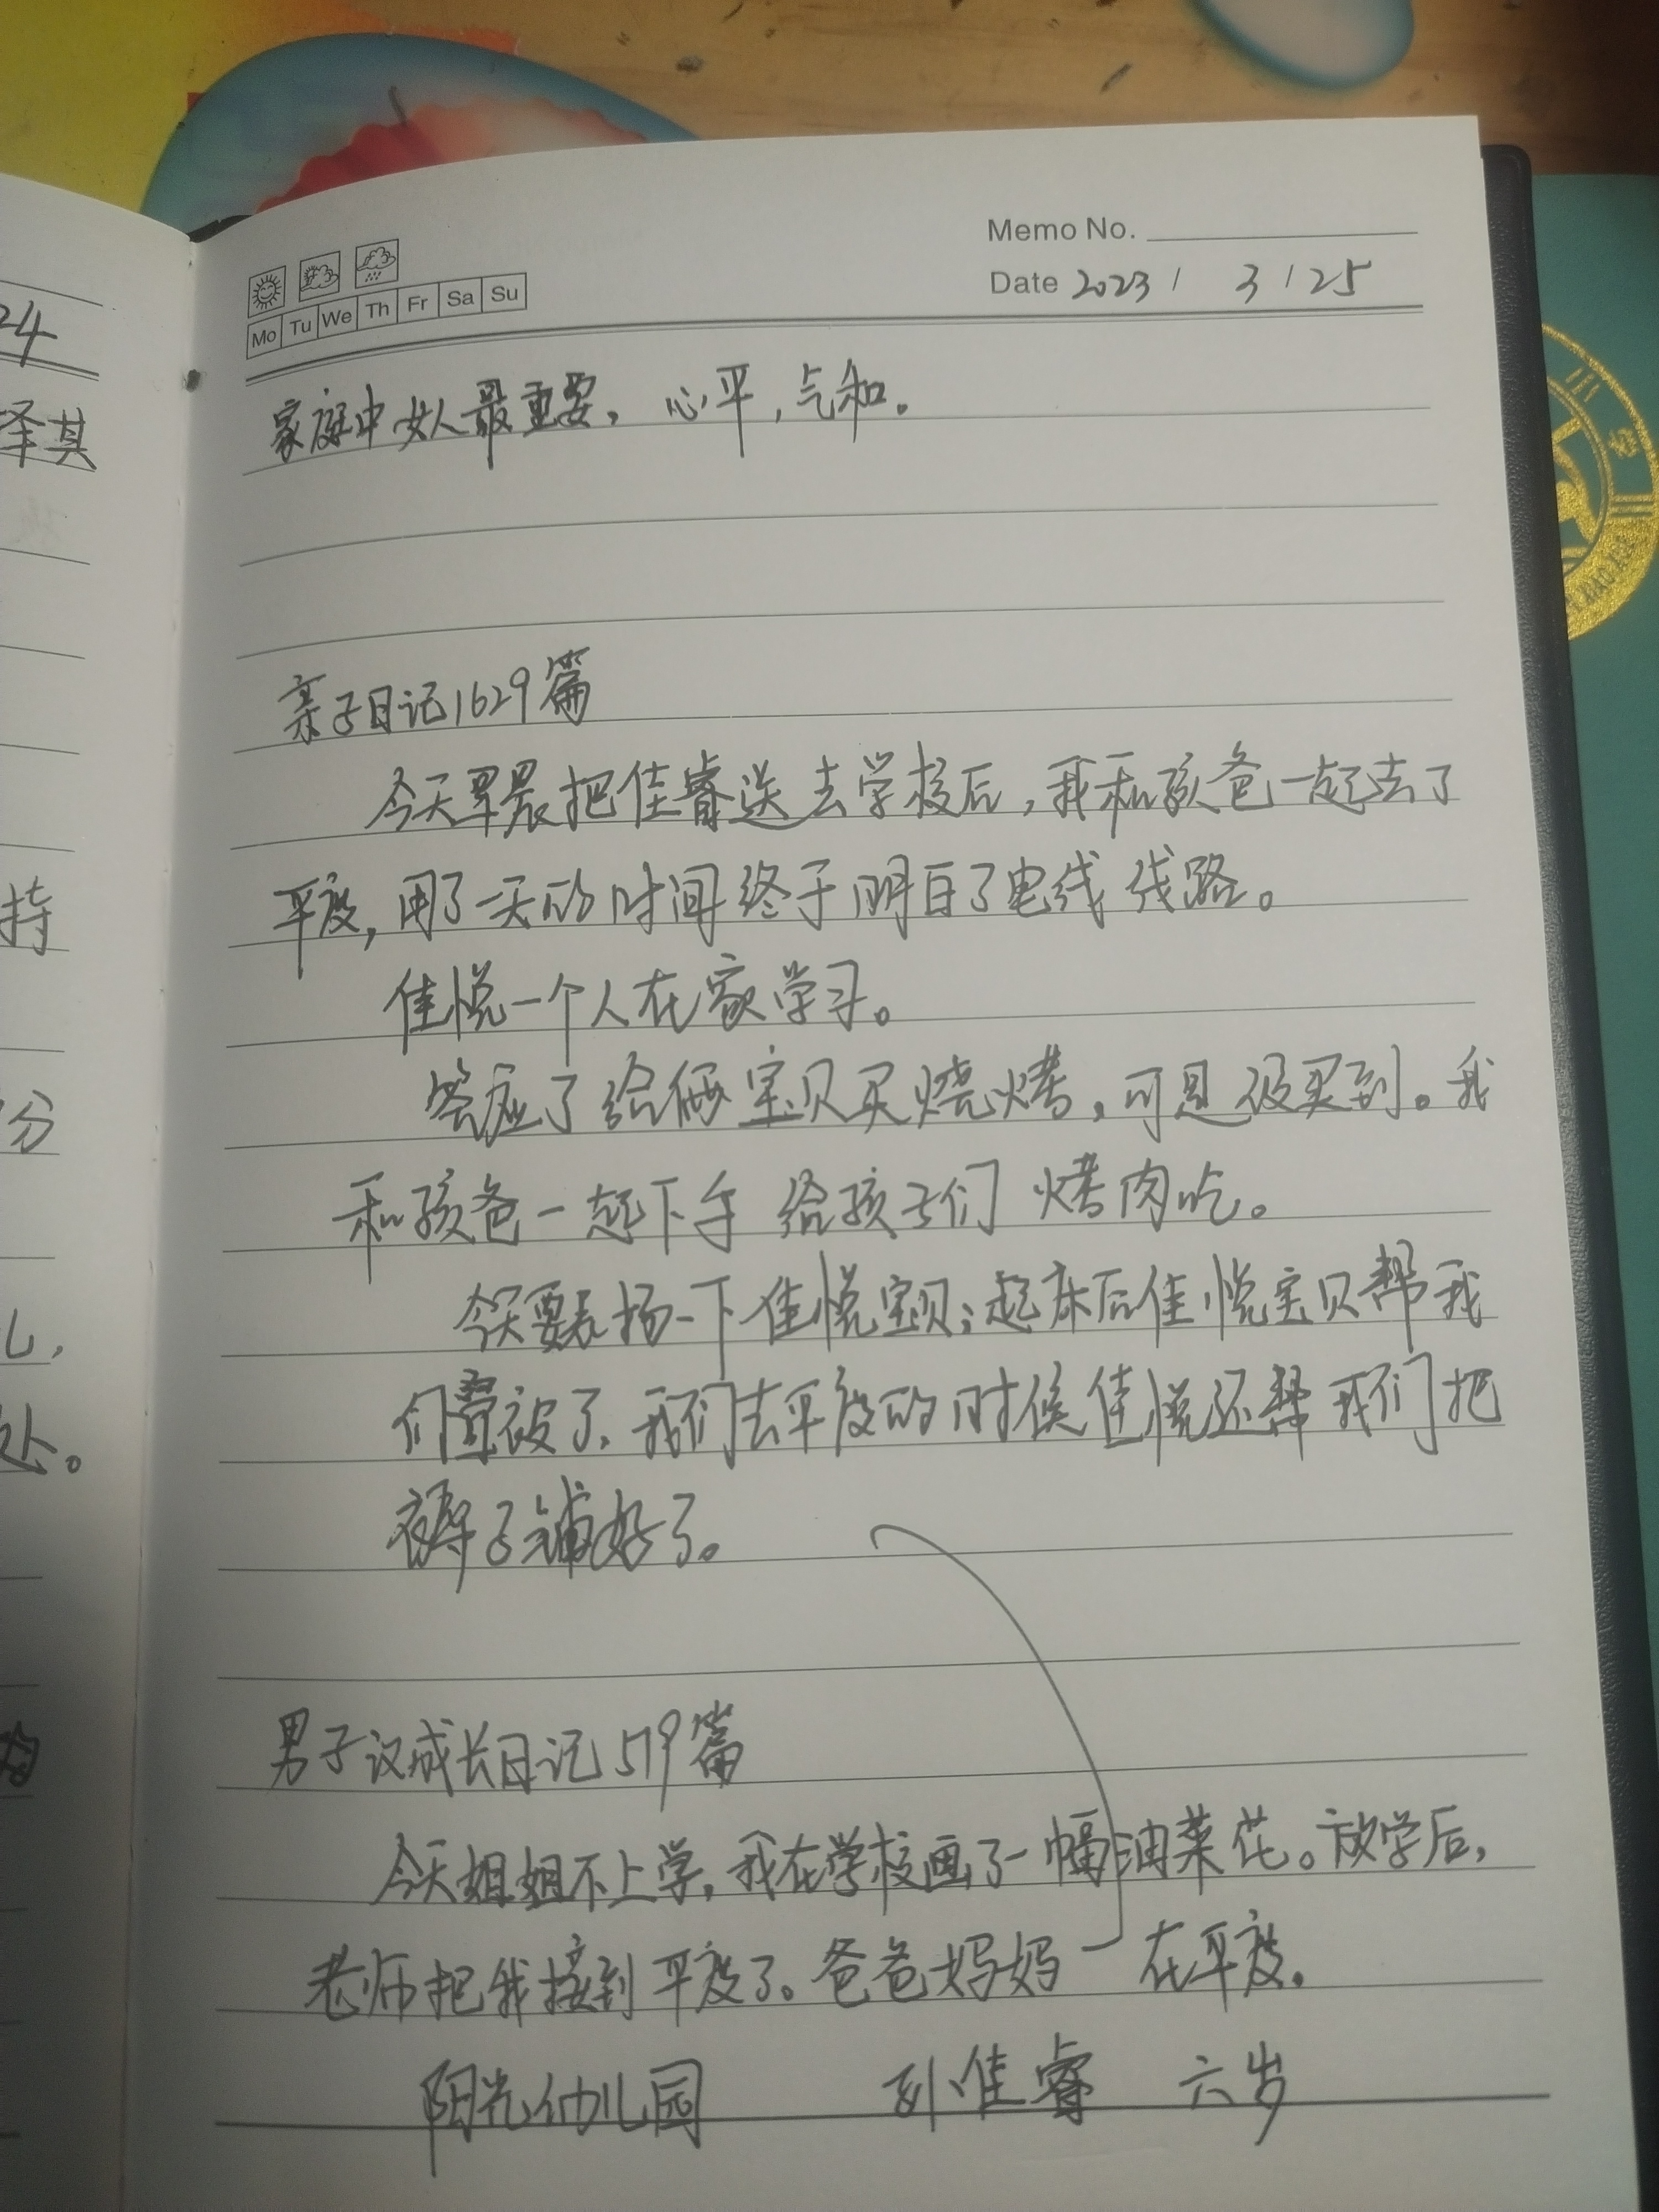 Memo No.
Date 2023 / 3 / 25
Mo Tu We Th Fr Sa Su
家庭中女人最重要，心平，气和。
亲子日记1629篇
今天早晨把佳睿送去学校后，我和孩爸一起去了
平度，用了一天的时间终于明白了电线线路。
佳悦一个人在家学习。
答应了给俩宝贝买烧烤，可是没买到。我
和孩爸一起下手给孩子们烤肉吃。
今天要表扬一下佳悦宝贝；起床后佳悦宝贝帮我
们叠被了，我们去平度的时候佳悦还帮我们把
褥子铺好了。
男子汉成长日记579篇
今天姐姐不上学，我在学校画了一幅油菜花。放学后，
老师把我接到平度了。爸爸妈妈在平度。
阳光幼儿园 孙佳睿 六岁
24
泽其
持
分
儿，
处。